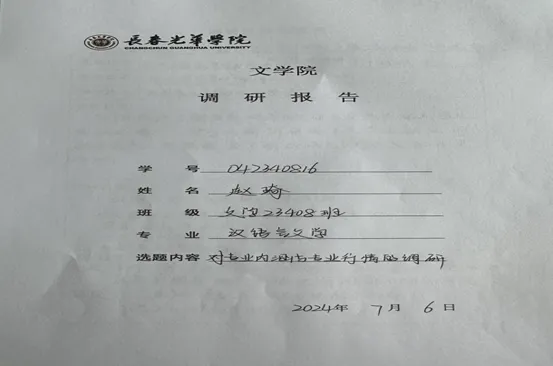 長春光華學院
CHANGCHUN GUANGHUA UNIVERSITY
文学院
调研报告
学号 042340816
姓名 赵琦
班级 文汉23408班
专业 汉语言文学
选题内容 对专业内涵与专业行情的调研
2024年 7月 6日